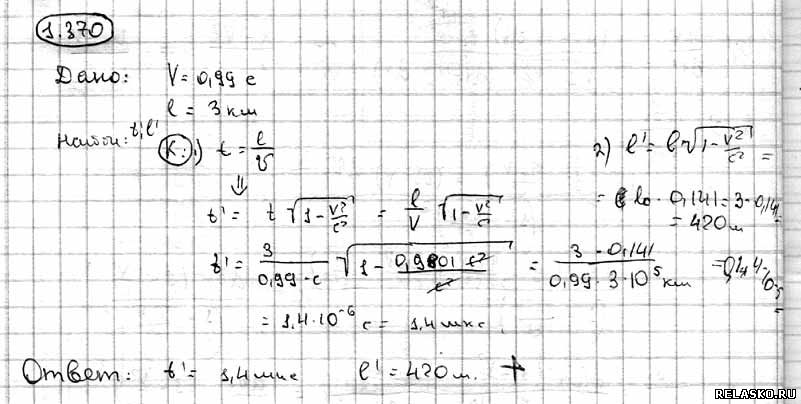 1.370
Дано: V = 0,99 c
l = 3 км
Найти: t', l' K: 1) t = l/v
⇓
t' = t √(1 - v²/c²) = l/V √(1 - v²/c²)
t' = 3/(0,99·c) √(1 - 0,9801 c²/c²) = 3·0,141/(0,99·3·10⁵ км)
= 1,4·10⁻⁶ c = 1,4 мкс.
2) l' = l √(1 - v²/c²) =
= l₀ · 0,141 = 3·0,141
= 420 м
Ответ: t' = 1,4 мкс l' = 420 м. +
RELASKO.RU